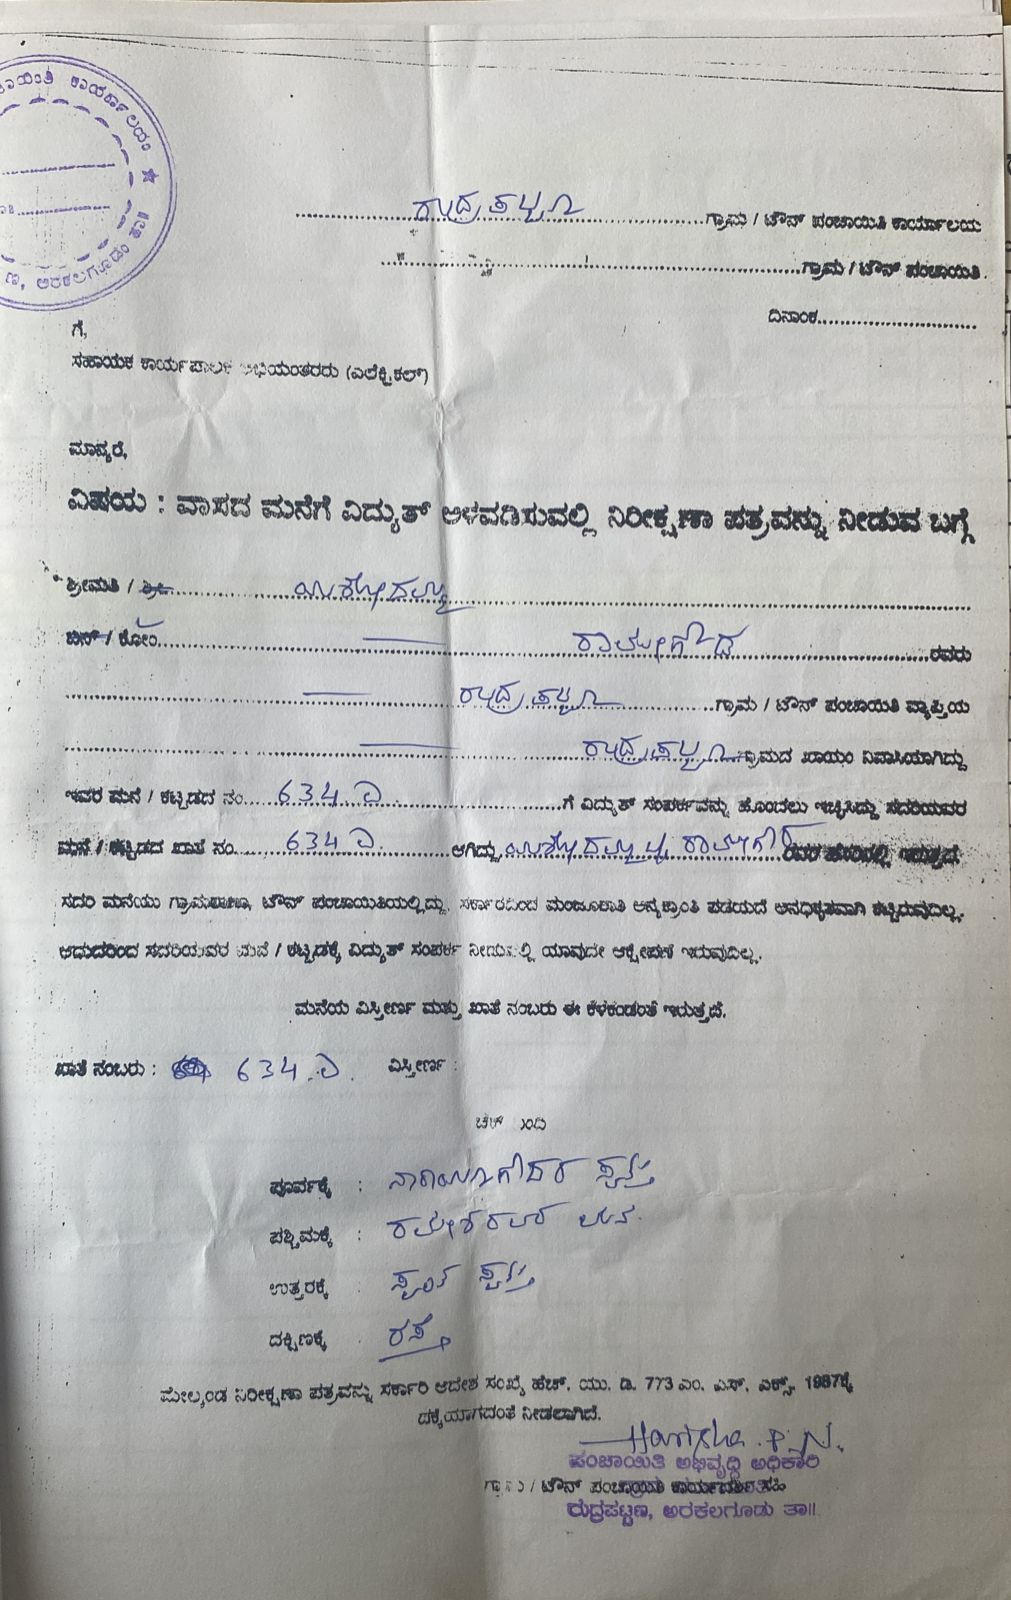 ಕಾರ್ಯಾಲಯ ★
ಅರಕಲಗೂಡು ತಾ॥
ರುದ್ರಪಟ್ಟಣ ಗ್ರಾಮ / ಟೌನ್ ಪಂಚಾಯಿತಿ ಕಾರ್ಯಾಲಯ
ಗ್ರಾಮ / ಟೌನ್ ಪಂಚಾಯಿತಿ.
ದಿನಾಂಕ
ಗೆ,
ಸಹಾಯಕ ಕಾರ್ಯಪಾಲಕ ಅಭಿಯಂತರರು (ಎಲೆಕ್ಟ್ರಿಕಲ್)
ಮಾನ್ಯರೆ,
ವಿಷಯ : ವಾಸದ ಮನೆಗೆ ವಿದ್ಯುತ್ ಅಳವಡಿಸುವಲ್ಲಿ ನಿರೀಕ್ಷಣಾ ಪತ್ರವನ್ನು ನೀಡುವ ಬಗ್ಗೆ
ಶ್ರೀಮತಿ / ಶ್ರೀ ಯಶೋದಮ್ಮ
ಬಿನ್ / ಕೋಂ ರಾಮೇಗೌಡ ರವರು
ರುದ್ರಪಟ್ಟಣ ಗ್ರಾಮ / ಟೌನ್ ಪಂಚಾಯಿತಿ ವ್ಯಾಪ್ತಿಯ
ರುದ್ರಪಟ್ಟಣ ಗ್ರಾಮದ ಖಾಯಂ ನಿವಾಸಿಯಾಗಿದ್ದು
ಇವರ ಮನೆ / ಕಟ್ಟಡದ ನಂ. 634 ಎ ಗೆ ವಿದ್ಯುತ್ ಸಂಪರ್ಕವನ್ನು ಹೊಂದಲು ಇಚ್ಛಿಸಿದ್ದು ಸದರಿಯವರ
ಮನೆ / ಕಟ್ಟಡದ ಖಾತೆ ನಂ. 634 ಎ ಆಗಿದ್ದು ಯಶೋದಮ್ಮ ರಾಮೇಗೌಡ ರವರ ಹೆಸರಿನಲ್ಲಿ ಇರುತ್ತದೆ
ಸದರಿ ಮನೆಯು ಗ್ರಾಮಠಾಣಾ, ಟೌನ್ ಪಂಚಾಯಿತಿಯಲ್ಲಿದ್ದು, ಸರ್ಕಾರದಿಂದ ಮಂಜೂರಾತಿ ಅನ್ಯಕ್ರಾಂತಿ ಪಡೆಯದೆ ಅನಧಿಕೃತವಾಗಿ ಕಟ್ಟಿರುವುದಿಲ್ಲ.
ಆದುದರಿಂದ ಸದರಿಯವರ ಮನೆ / ಕಟ್ಟಡಕ್ಕೆ ವಿದ್ಯುತ್ ಸಂಪರ್ಕ ನೀಡುವಲ್ಲಿ ಯಾವುದೇ ಆಕ್ಷೇಪಣೆ ಇರುವುದಿಲ್ಲ.
ಮನೆಯ ವಿಸ್ತೀರ್ಣ ಮತ್ತು ಖಾತೆ ನಂಬರು ಈ ಕೆಳಕಂಡಂತೆ ಇರುತ್ತದೆ.
ಖಾತೆ ನಂಬರು : 634 ಎ. ವಿಸ್ತೀರ್ಣ :
ಚೆಕ್ ಬಂದಿ
ಪೂರ್ವಕ್ಕೆ : ನಾರಾಯಣಗೌಡರ ಸ್ವತ್ತು
ಪಶ್ಚಿಮಕ್ಕೆ : ರಮೇಶರವರ ಮನೆ.
ಉತ್ತರಕ್ಕೆ : ಸ್ವಂತ ಸ್ವತ್ತು
ದಕ್ಷಿಣಕ್ಕೆ : ರಸ್ತೆ
ಮೇಲ್ಕಂಡ ನಿರೀಕ್ಷಣಾ ಪತ್ರವನ್ನು ಸರ್ಕಾರಿ ಆದೇಶ ಸಂಖ್ಯೆ ಹೆಚ್. ಯು. ಡಿ. 773 ಎಂ. ಎಸ್. ಎಕ್ಸ್. 1987ಕ್ಕೆ
ದಕ್ಕೆಯಾಗದಂತೆ ನೀಡಲಾಗಿದೆ.
Harisha . P. N.
ಪಂಚಾಯಿತಿ ಅಭಿವೃದ್ಧಿ ಅಧಿಕಾರಿ
ಗ್ರಾಮ / ಟೌನ್ ಪಂಚಾಯಿತಿ ಕಾರ್ಯದರ್ಶಿ ಸಹಿ
ರುದ್ರಪಟ್ಟಣ, ಅರಕಲಗೂಡು ತಾ॥